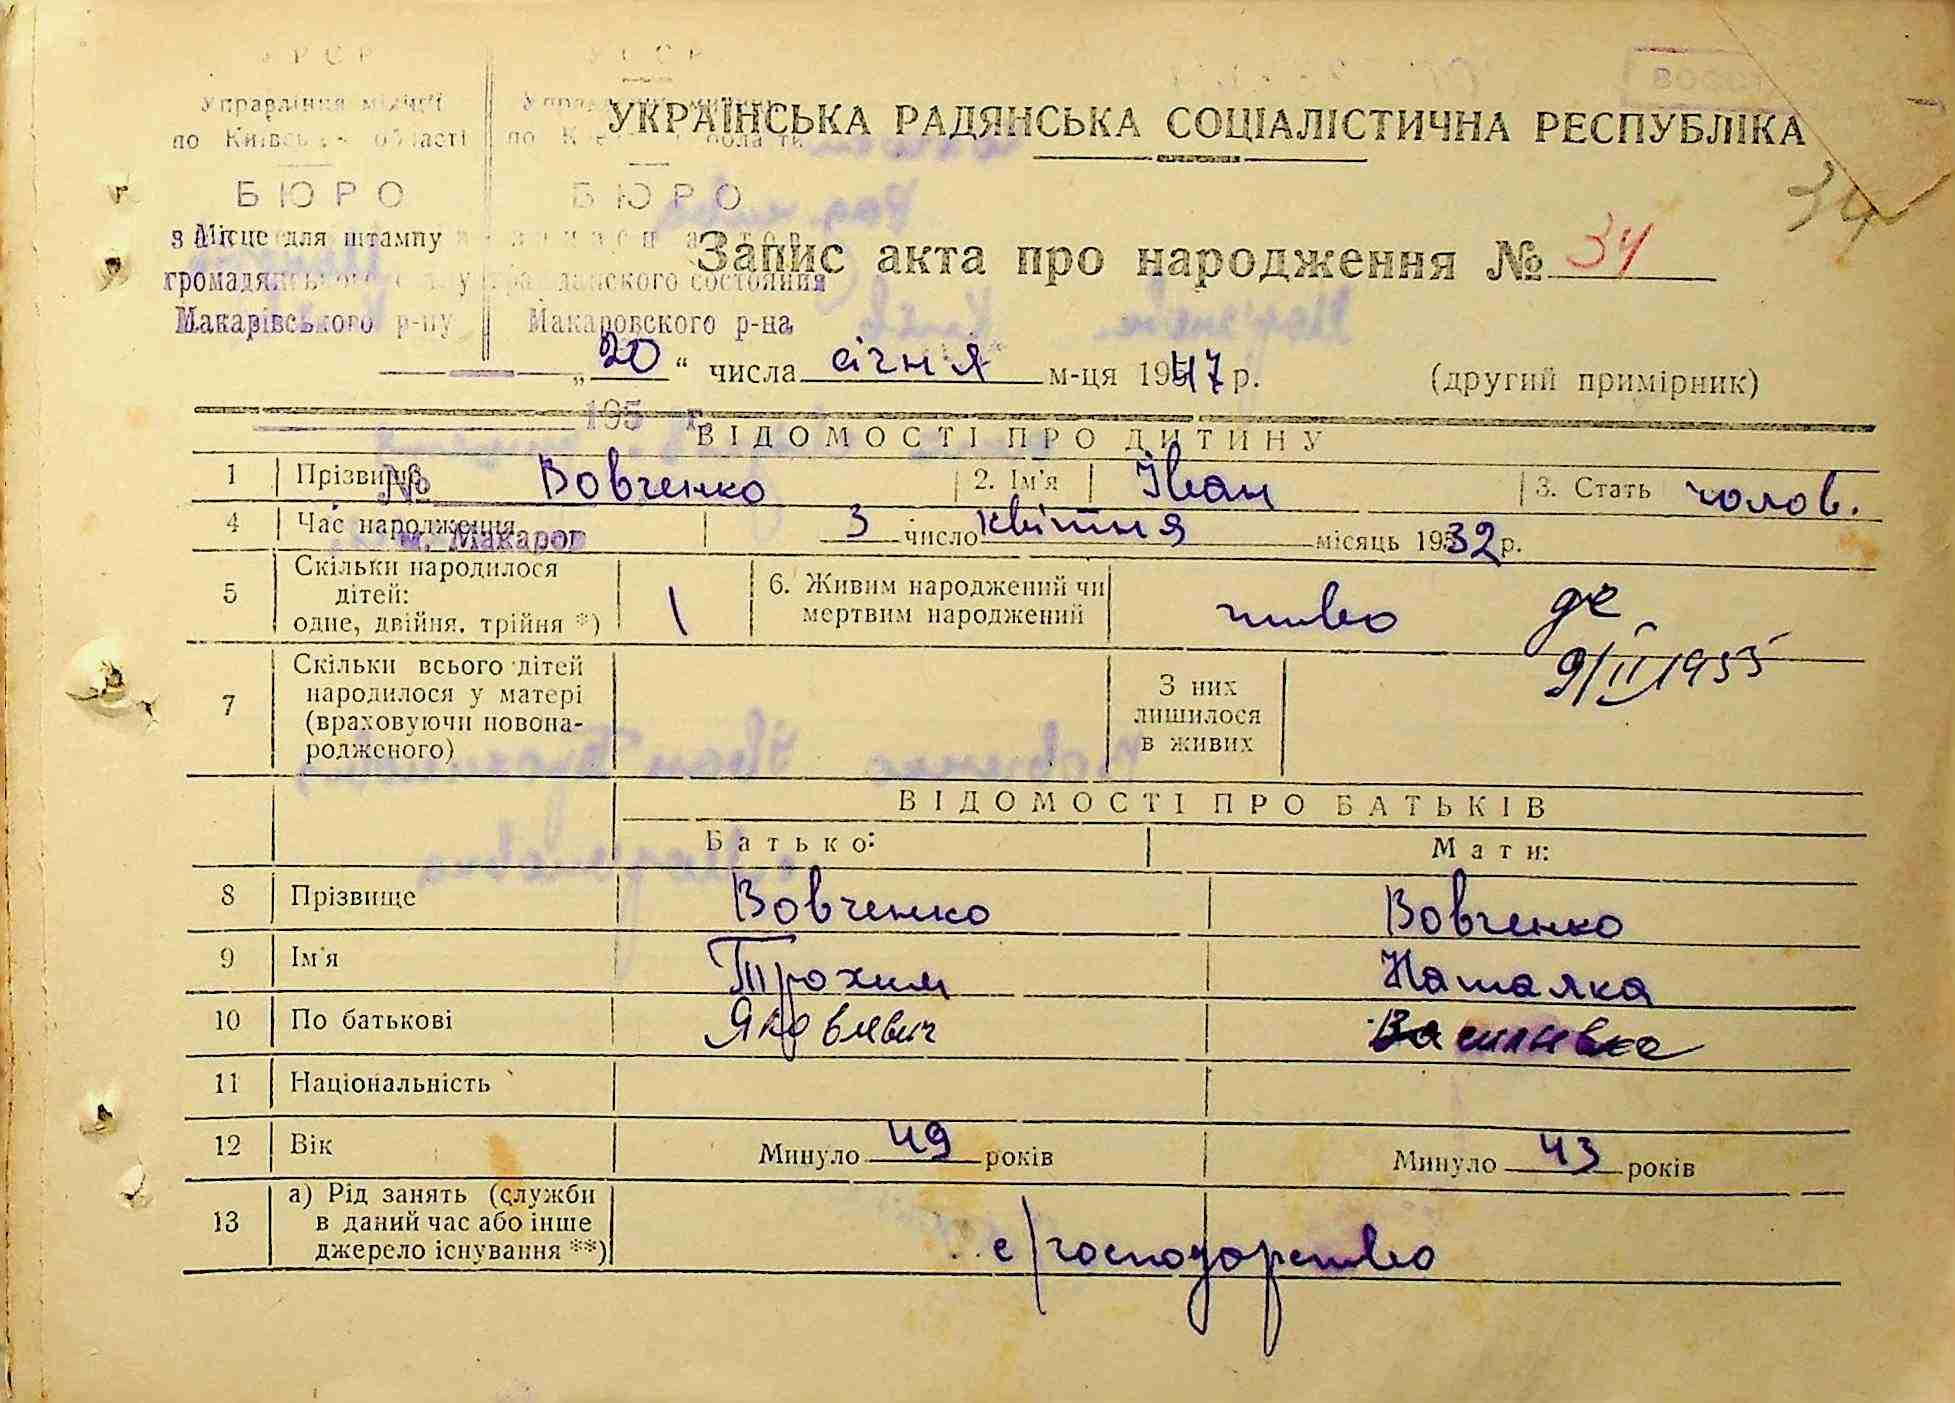 УРСР УССР
Управління міліції Управление милиции
по Київській області по Киевской области
УКРАЇНСЬКА РАДЯНСЬКА СОЦІАЛІСТИЧНА РЕСПУБЛІКА
БЮРО БЮРО
34
Місце для штампу
Запис акта про народження № 34
громадянського стану гражданского состояния
Макарівського р-ну Макаровского р-на
„20“ числа січня м-ця 1947 р. (другий примірник)
195 г.
ВІДОМОСТІ ПРО ДИТИНУ
1 Прізвище Вовченко 2. Ім'я Іван 3. Стать чолов.
№
4 Час народження 3 число квітня місяць 1932 р.
м. Макаров
5 Скільки народилося дітей: одне, двійня, трійня *) 1 6. Живим народжений чи мертвим народжений живо
9/II 1955
7 Скільки всього дітей народилося у матері (враховуючи новонародженого) З них лишилося в живих
ВІДОМОСТІ ПРО БАТЬКІВ
Батько: Мати:
8 Прізвище Вовченко Вовченко
9 Ім'я Трохим Наталка
10 По батькові Яковлевич Василівка
11 Національність
12 Вік Минуло 49 років Минуло 43 років
13 а) Рід занять (служби в даний час або інше джерело існування **) с/господарство